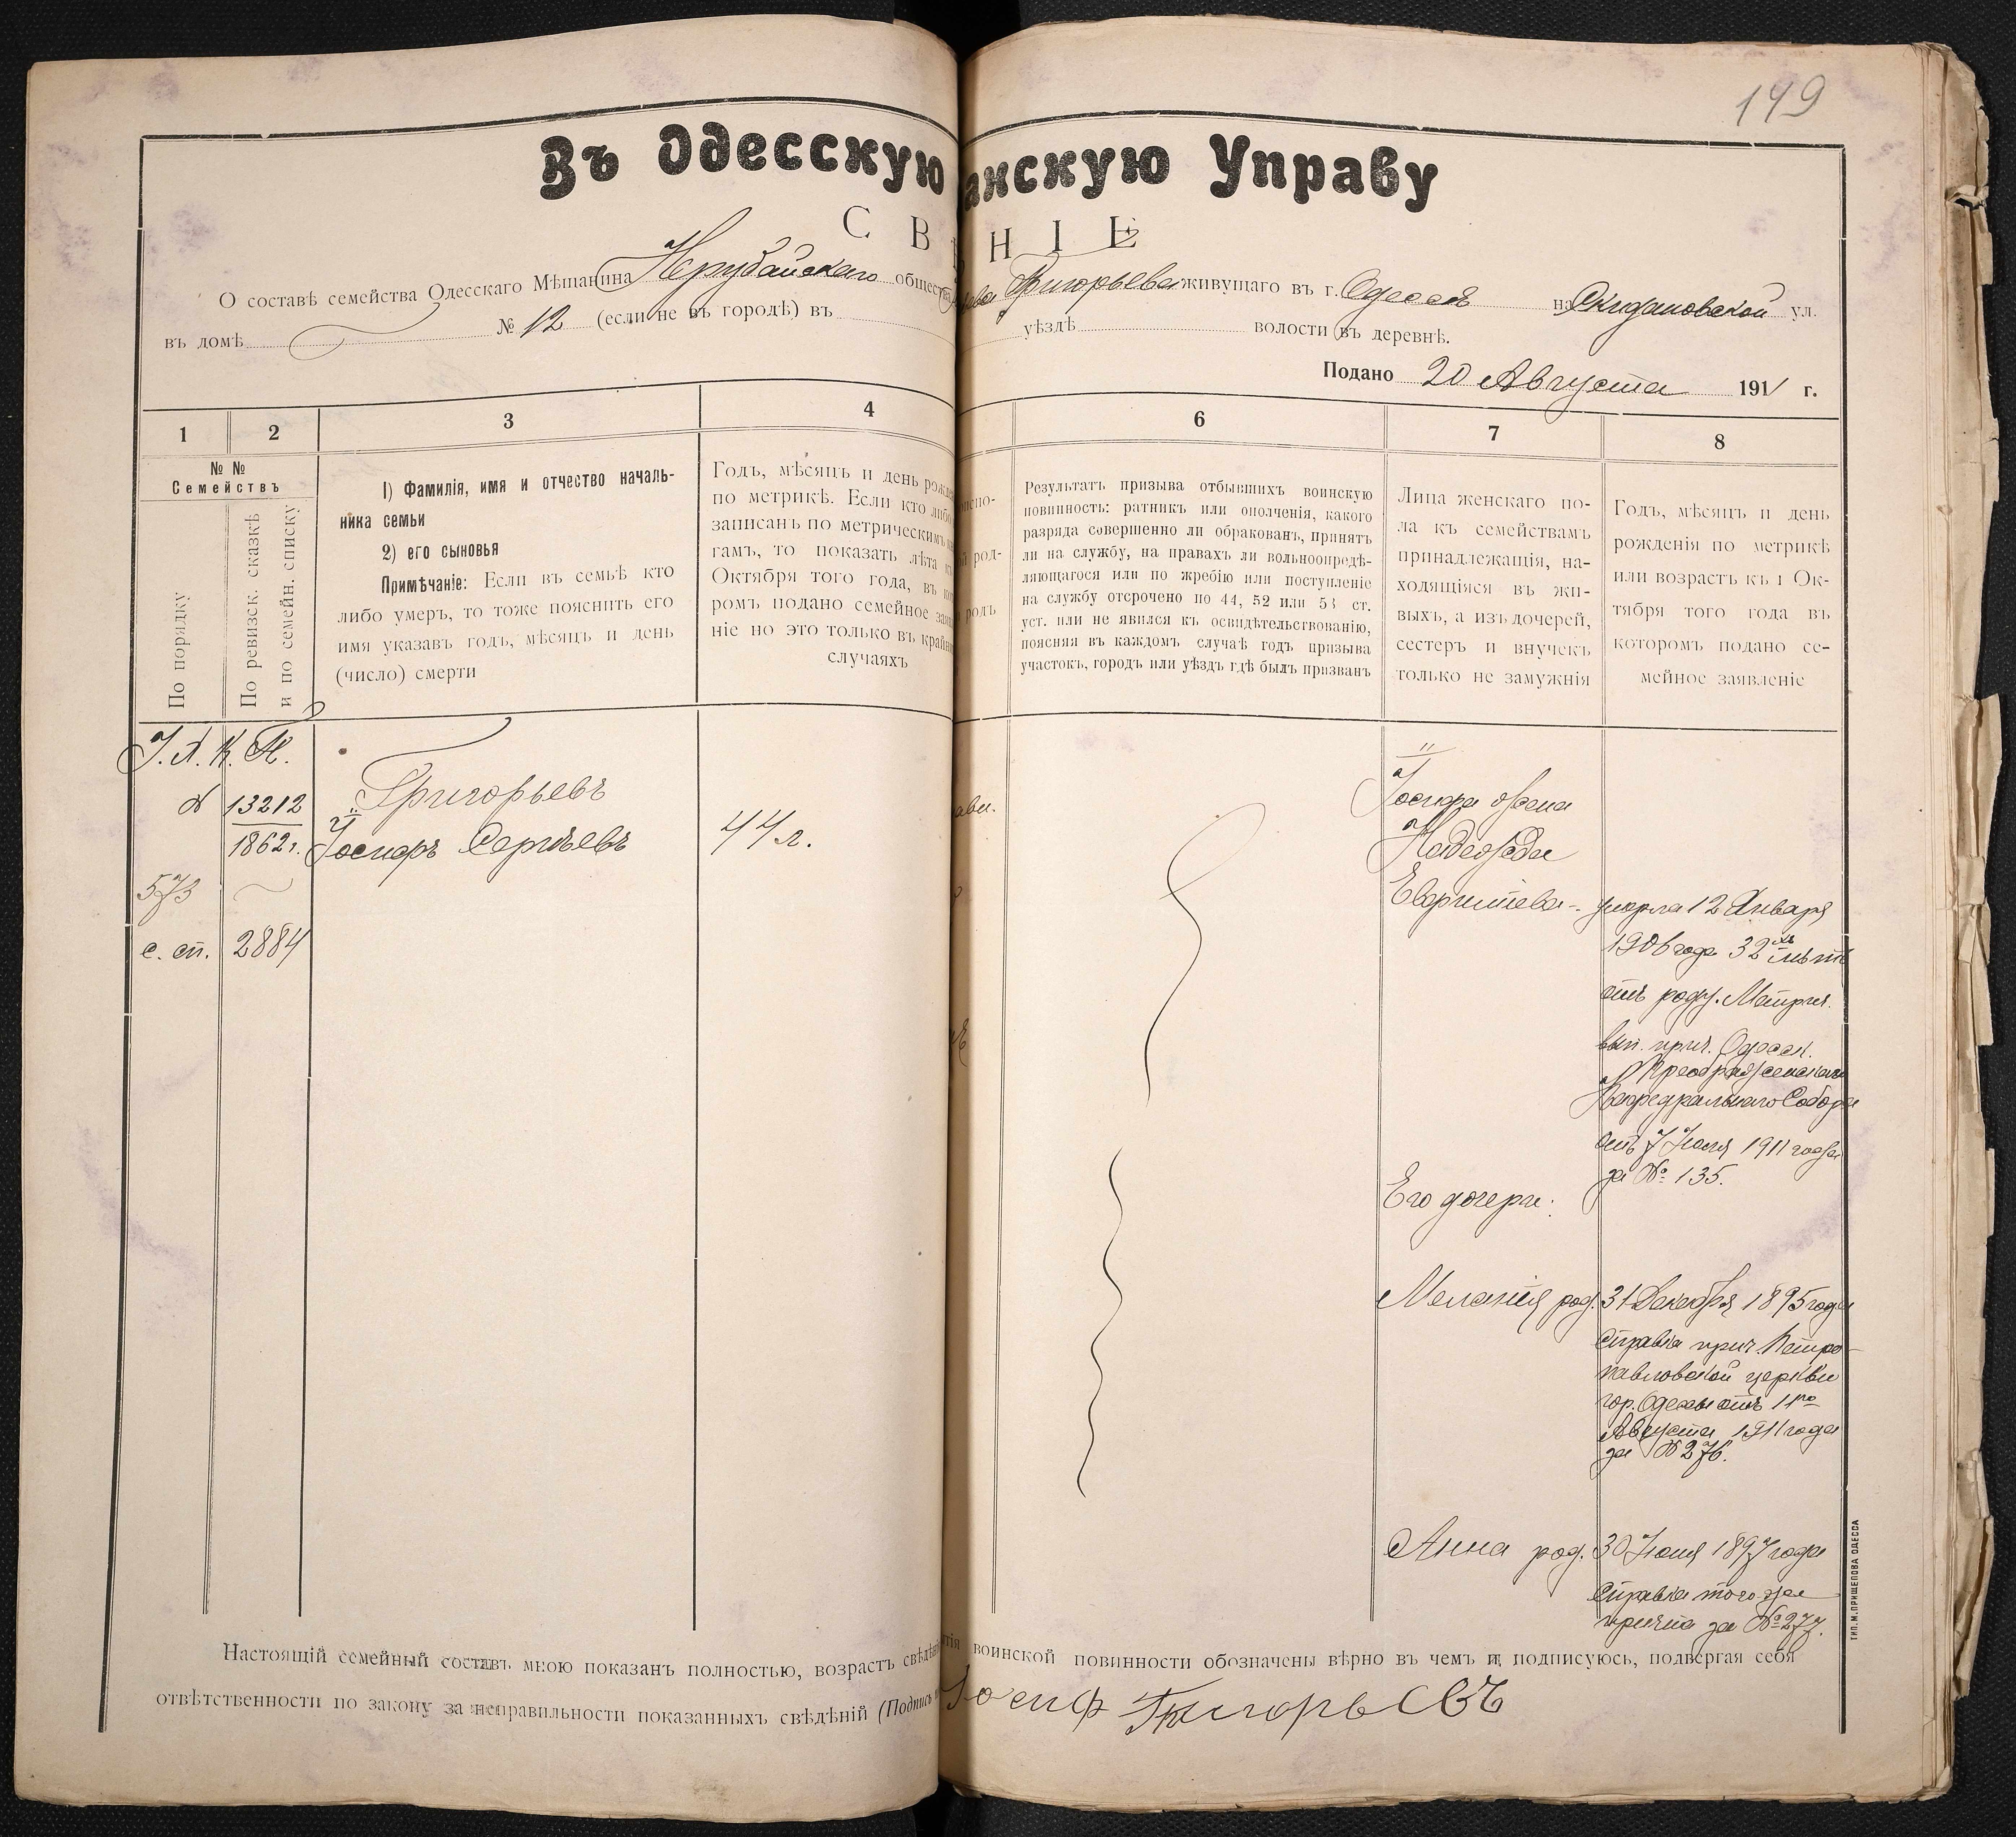 149
Въ Одесскую
анскую Управу
С В
Н І Е
О составѣ семейства Одесскаго Мѣщанина Нерубайскаго общества
Григорьева живущаго въ г. Одессѣ на Скидановской ул.
въ домѣ № 12 (если не въ городѣ) въ
уѣздѣ волости въ деревнѣ.
Подано 20 Августа 1911 г.
1
2
3
4
6
7
8
№ №
Семействъ
По порядку
По ревизск. сказкѣ
и по семейн. списку
1) Фамилія, имя и отчество началь-
ника семьи
2) его сыновья
Примѣчаніе: Если въ семьѣ кто
либо умеръ, то тоже пояснить его
имя указавъ годъ, мѣсяцъ и день
(число) смерти
Годъ, мѣсяцъ и день рожде
по метрикѣ. Если кто либо
записанъ по метрическимъ
гамъ, то показать лѣта
Октября того года, въ
ромъ подано семейное
ніе но это только въ крайн
случаяхъ
род-
родъ
Результатъ призыва отбывшихъ воинскую
повинность: ратникъ или ополченія, какого
разряда совершенно ли обракованъ, принятъ
ли на службу, на правахъ ли вольноопредѣ-
ляющагося или по жребію или поступленіе
на службу отсрочено по 44, 52 или 53 ст.
уст. или не явился къ освидѣтельствованію,
поясняя въ каждомъ случаѣ годъ призыва
участокъ, городъ или уѣздъ гдѣ былъ призванъ
Лица женскаго по-
ла къ семействамъ
принадлежащія, на-
ходящіяся въ жи-
выхъ, а изъ дочерей,
сестеръ и внучекъ
только не замужнія
Годъ, мѣсяцъ и день
рожденія по метрикѣ
или возрастъ къ 1 Ок-
тября того года въ
которомъ подано се-
мейное заявленіе
№ 13212
1862 г.
573
с. сп. 2884
Григорьевъ
Іосифъ Сергѣевъ
44 л.
Іосифа жена
Надежда
Евариттева - умерла 12 Января
1906 года 32хъ лѣтъ
отъ роду. Метрич.
вып. прич. Одесск.
Преображенскаго
Кафедральнаго Собора
отъ 7 Іюля 1911 года
за № 135.
Его дочери:
Меланія род. 31 Декабря 1895 года
Справка прич. Петро-
павловской церкви
гор. Одессы отъ 11го
Августа 1911 года
за № 276.
Анна род. 30 Іюля 1897 года
Справка того же
причта за № 277.
Настоящій семейный составъ мною показанъ полностью, возрастъ свѣдѣн
воинской повинности обозначены вѣрно въ чемъ и подписуюсь, подвергая себя
отвѣтственности по закону за неправильности показанныхъ свѣдѣній (Подпись
Іосиф Григорьевъ
ТИП. М. ПРИЩЕПОВА ОДЕССА